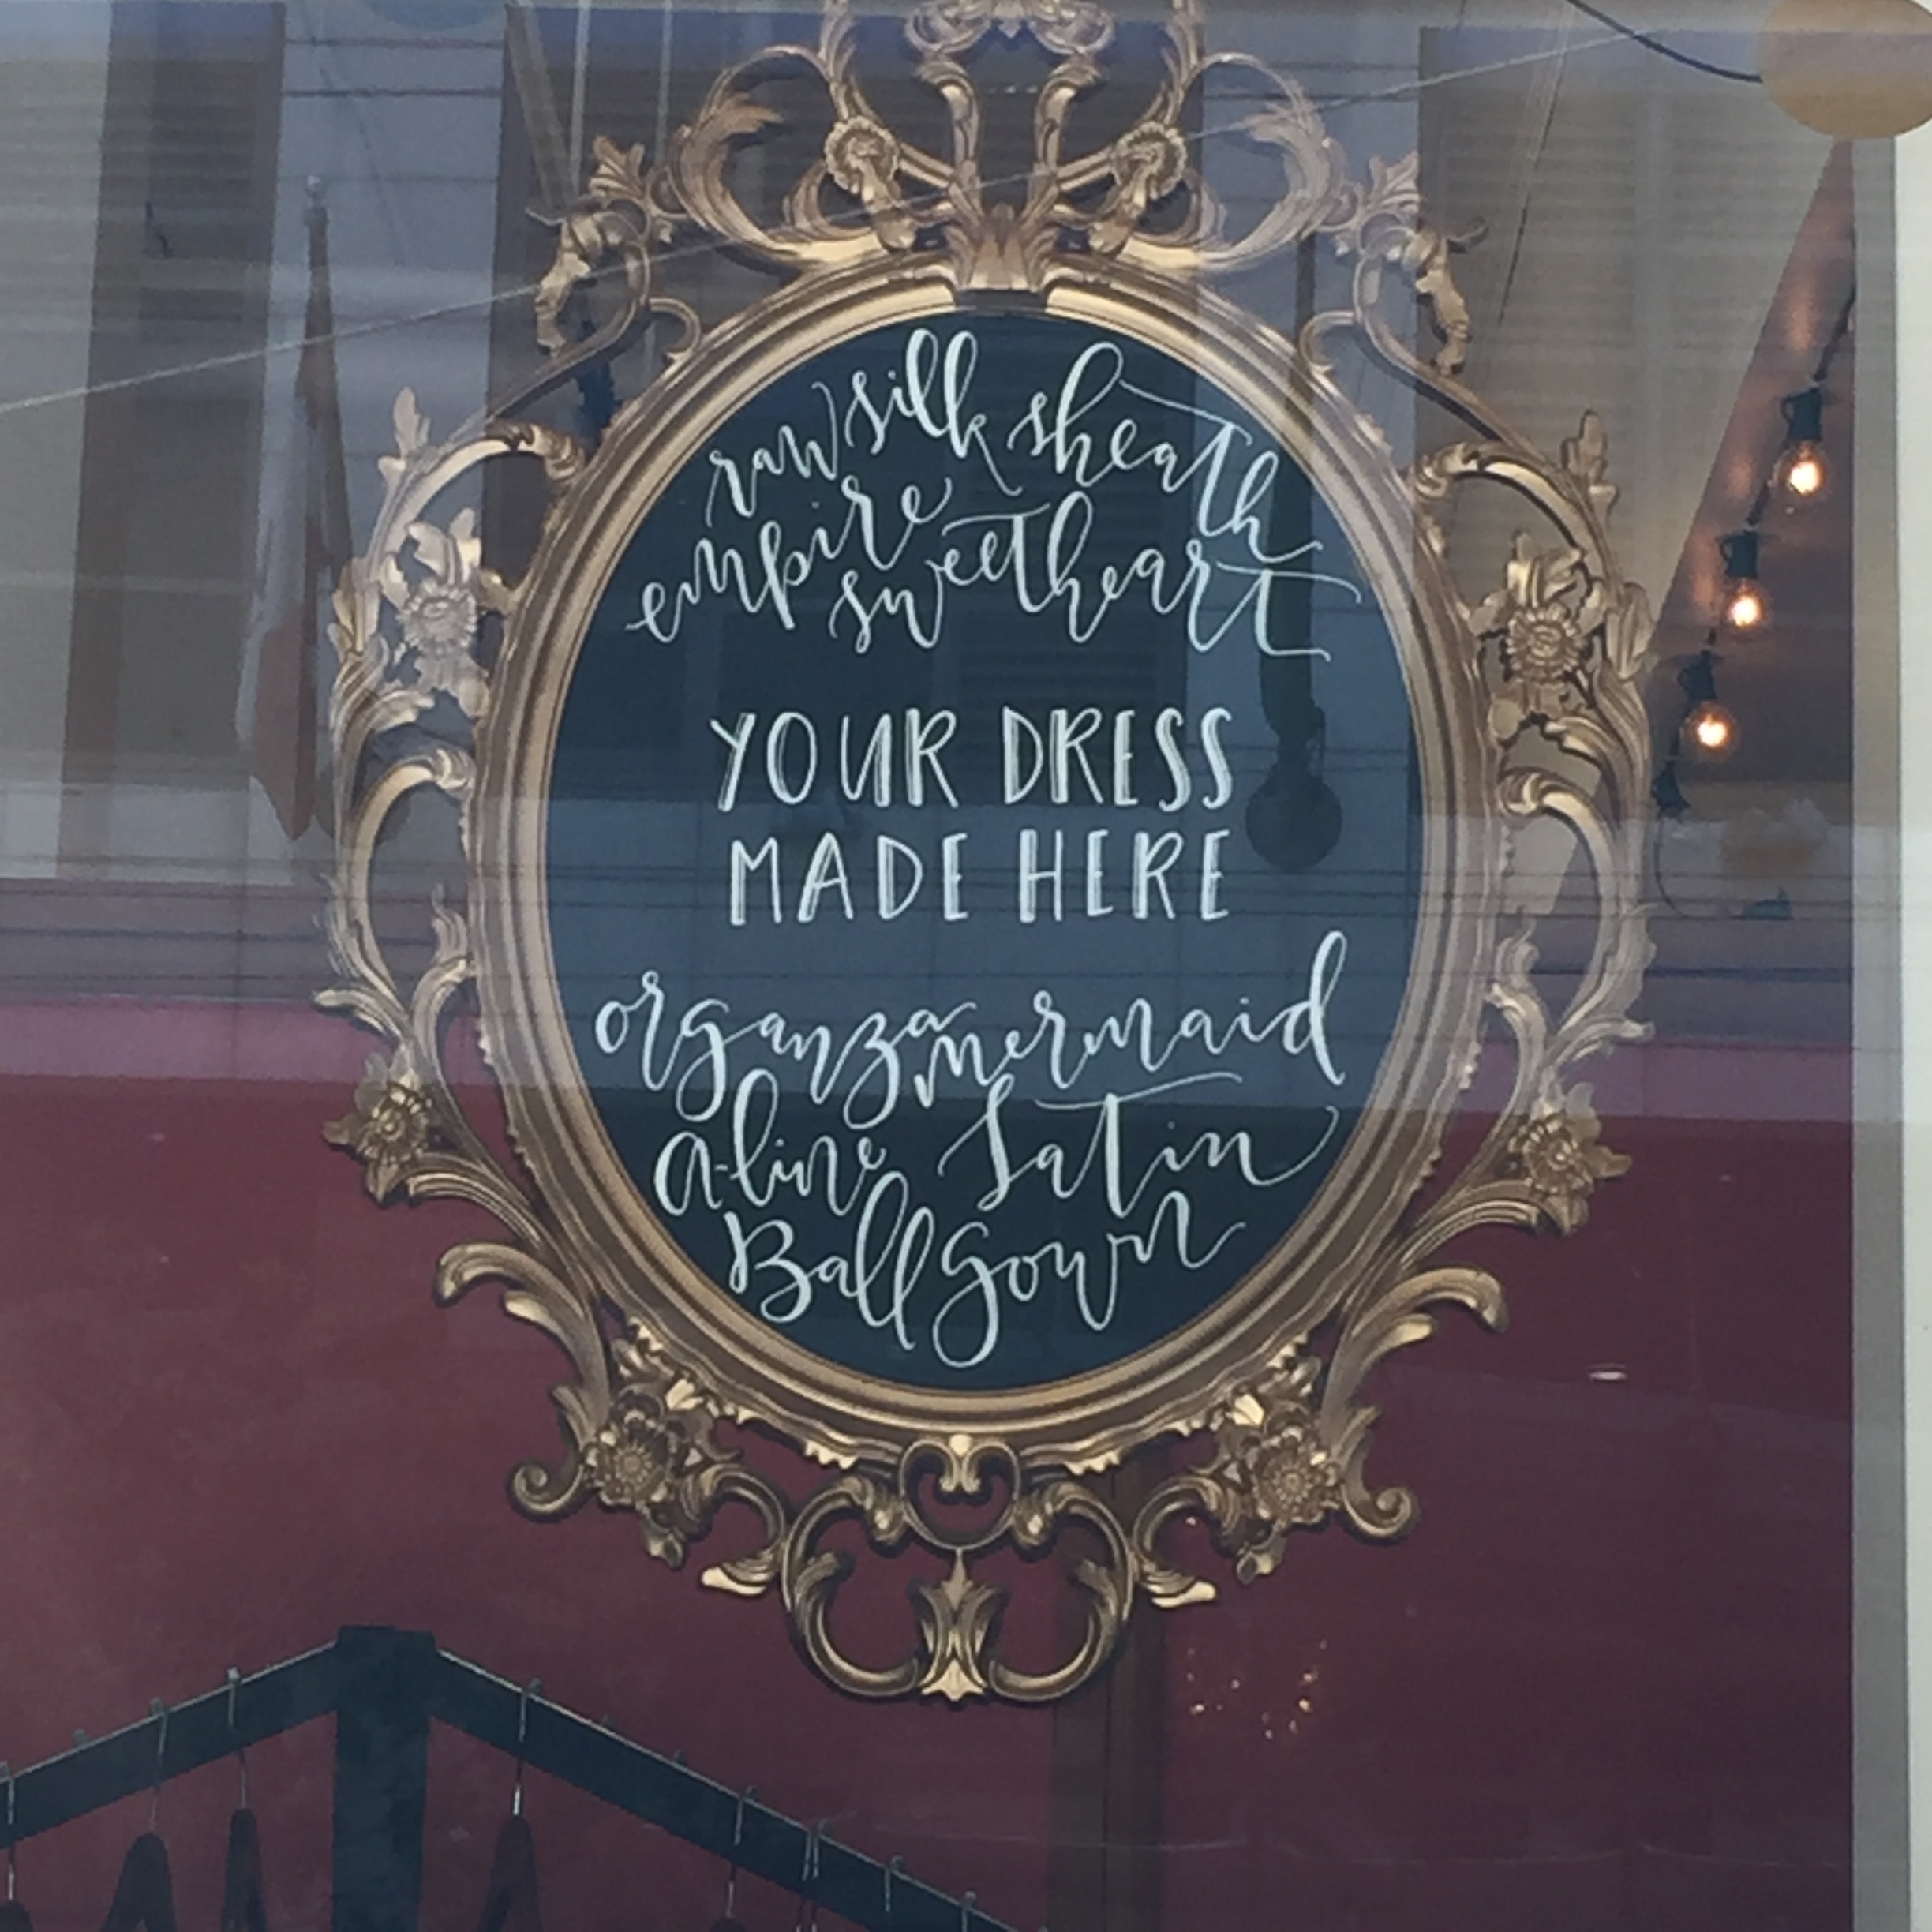 raw silk sheath
empire sweetheart
YOUR DRESS
MADE HERE
organza mermaid
a-line Satin
Ball Gown